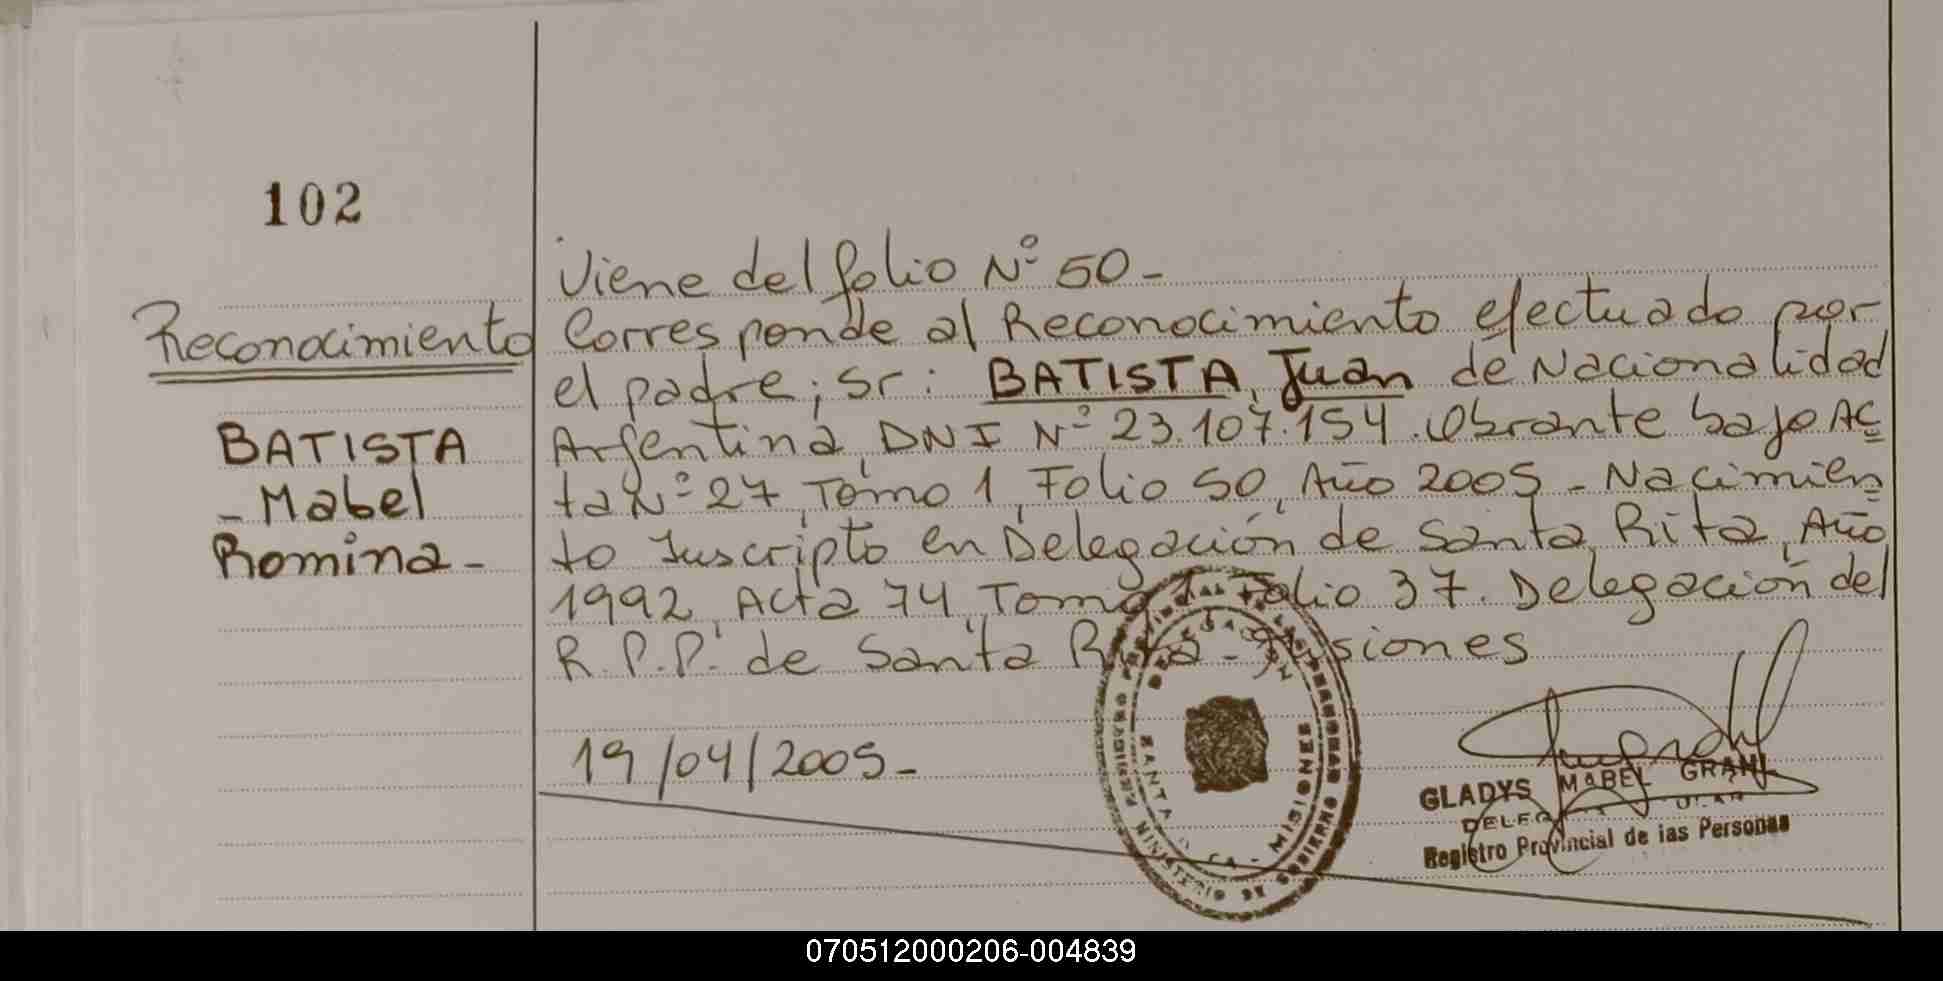 102
Reconocimiento
BATISTA
- Mabel
Romina -
Viene del folio Nº 50 -
Corresponde al Reconocimiento efectuado por
el padre; Sr: BATISTA, Juan de Nacionalidad
Argentina, DNI Nº 23.107.154. Obrante bajo Ac
ta Nº 27, Tomo 1, Folio 50, Año 2005 - Nacimien
to Inscripto en Delegación de Santa Rita, Año
1992, Acta 74, Tomo 1, Folio 37. Delegación del
R.P.P. de Santa Rita - Misiones
19/04/2005 -
MINISTERIO DE GOBIERNO
SANTA
- MISIONES
GLADYS MABEL
Registro Provincial de las Personas
070512000206-004839